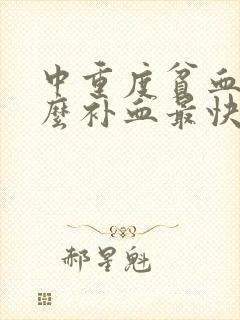 中重度贫血
麼补血最快
郝星魁